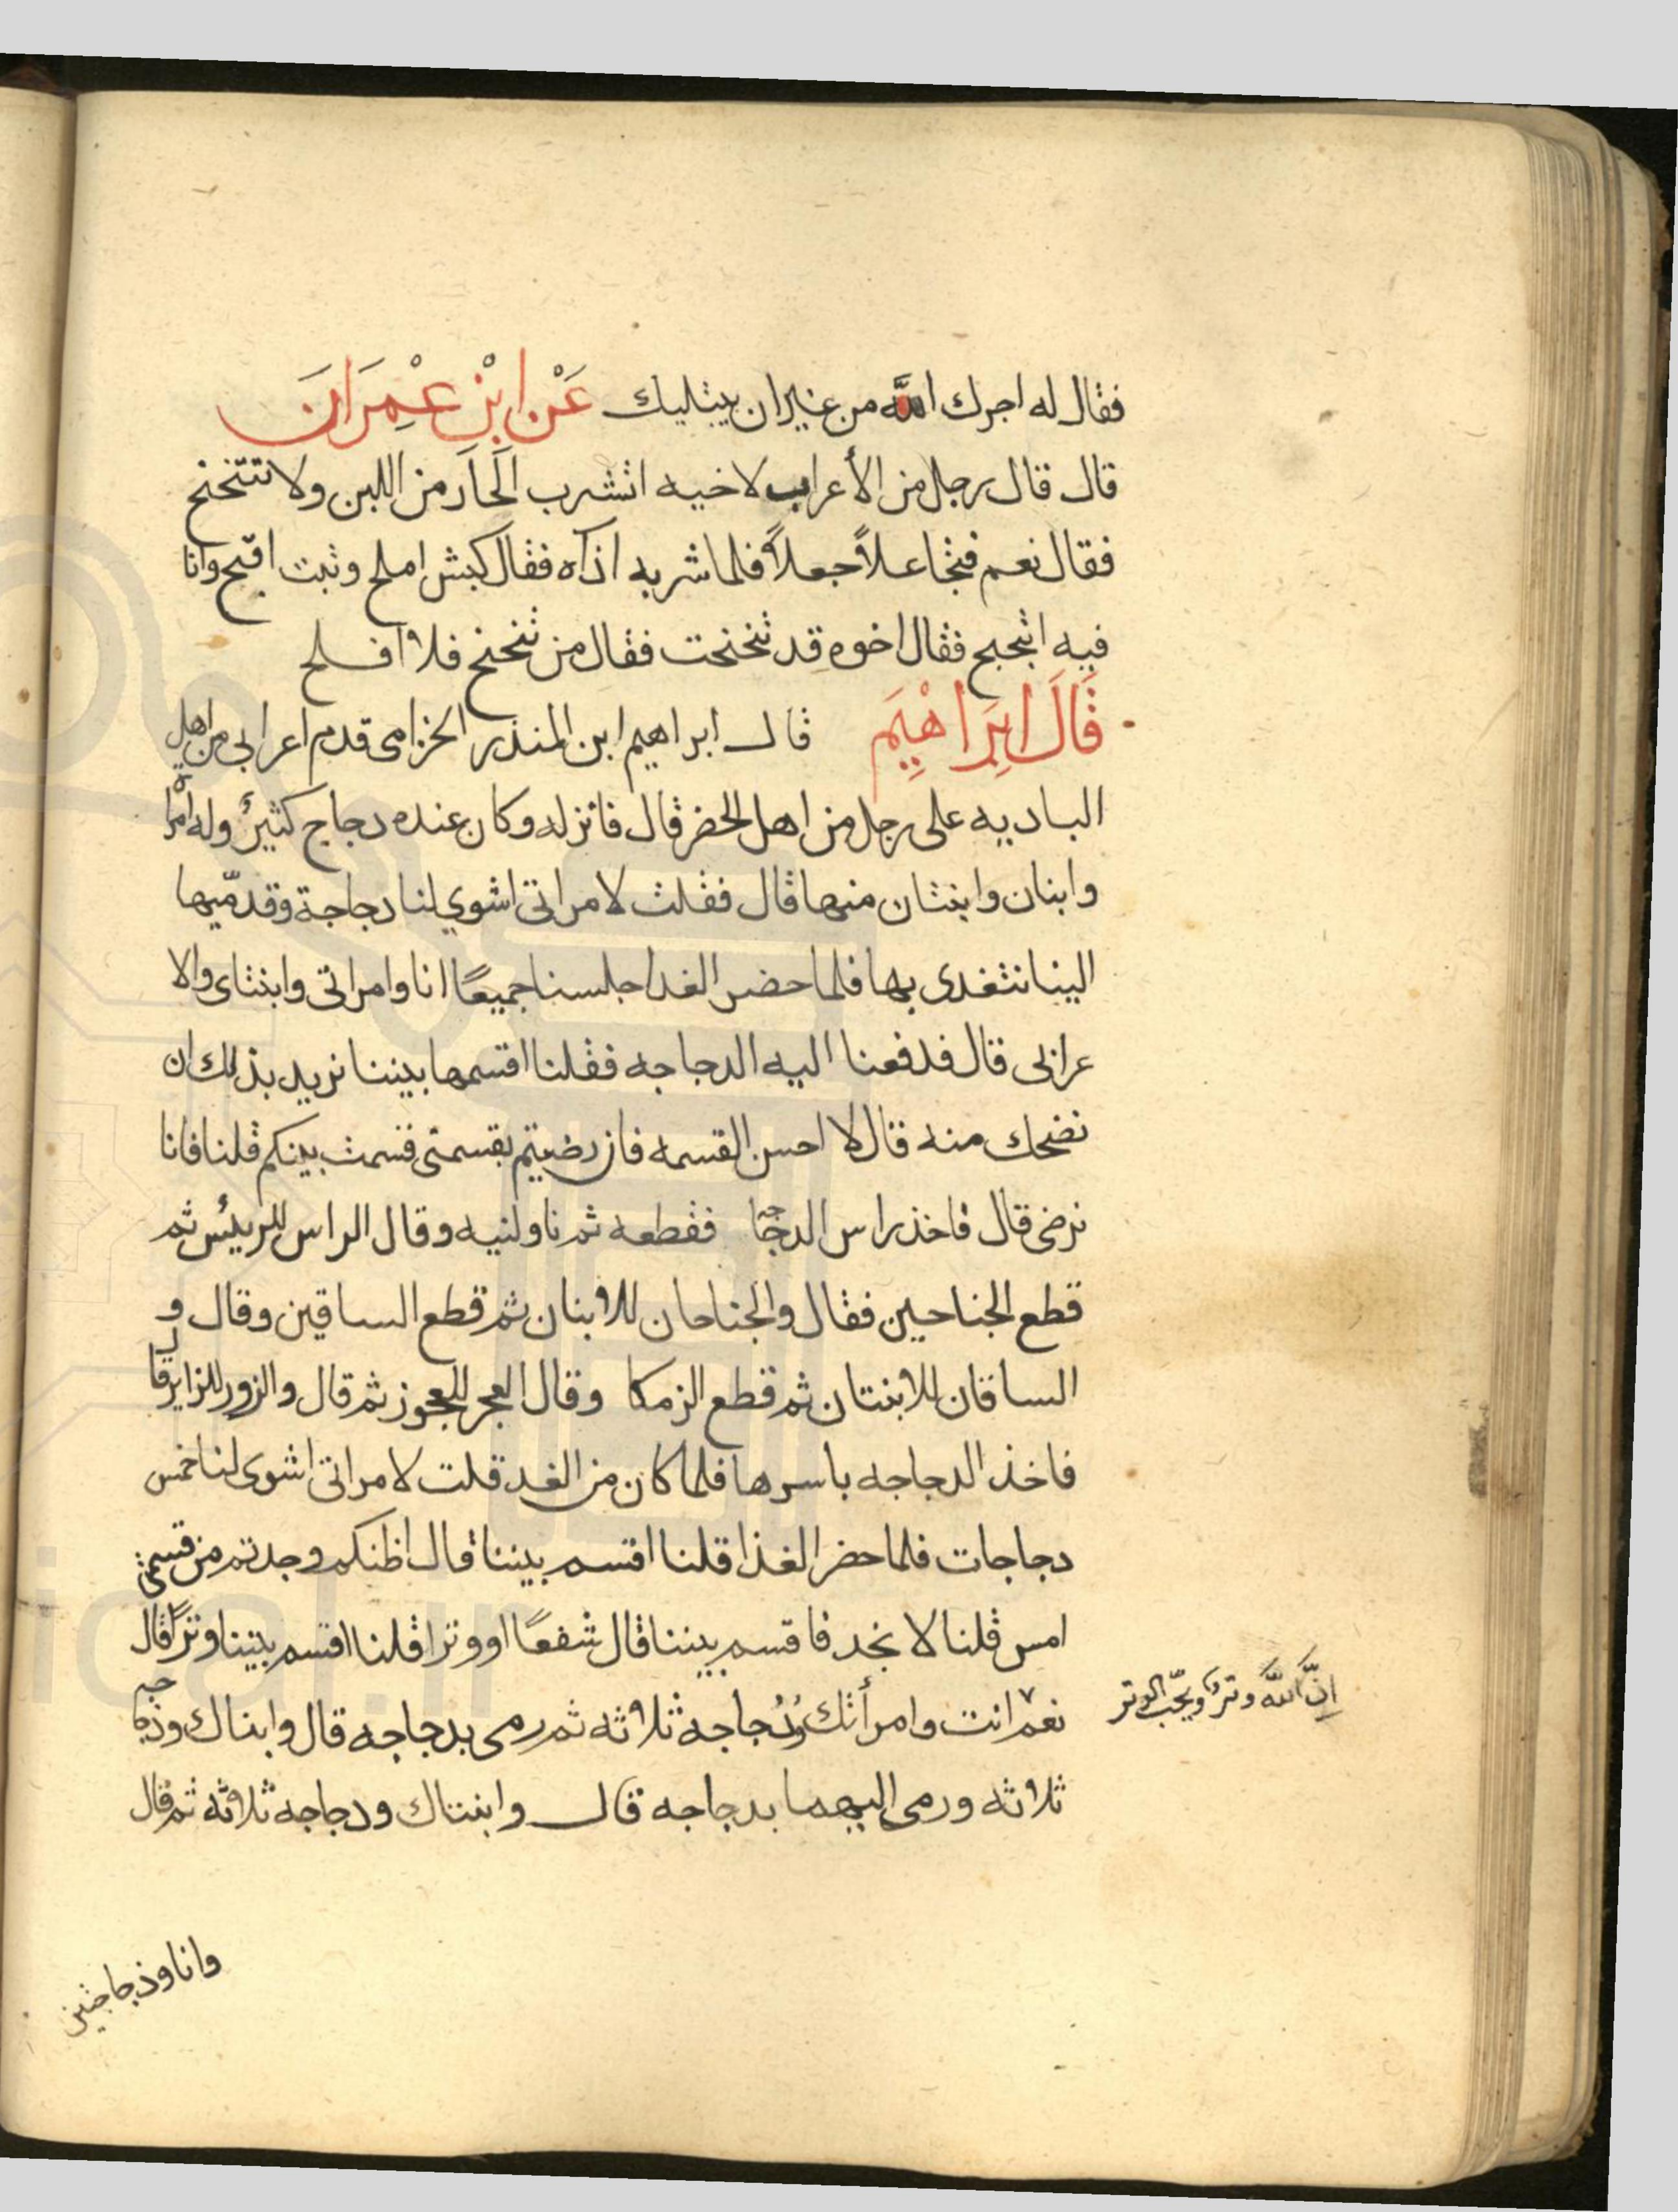 فقال له اجرك الله من غير ان يبتليك عَنْ ابْن عِمْرَانَ
قال قال رجل من الأعراب لاخيه اتشرب الَحَار من اللبن ولا تتنحنح
فقال نعم فتجاعلاً جعلاً فلما شربه اذاه فقال كبش املح ونبت اقبح وانا
فيه اتبحبح فقال اخوه قد تنحنحت فقال من تنحنح فلا افلح
قَالَ ابِرَاهْيِمَ قال ابراهيم ابن المنذر الحزامى قدم اعرابى من اهل
الباديه على رجل من اهل الحضر قال فانزله وكان عنده دجاج كثيرٌ وله امراة
وابنان وابنتان منها قال فقلت لامراتى اشوي لنا دجاجة وقدميّها
الينا نتغدى بها فلما حضر الغدا جلسنا جميعًا انا وامراتى وابنتاى والا
عرابى قال فدفعنا اليه الدجاجه فقلنا اقسمها بيننا نريد بذلك ان
نضحك منه قال لا احسن القسمه فان رضيتم بقسمتى قسمت بينكم قلنا فانا
نرضى قال فاخذ راس الدجاجه فقطعه ثم ناولنيه وقال الراس للرييس ثم
قطع الجناحين فقال والجناحان للابنان ثم قطع الساقين وقال و
الساقان للابنتان ثم قطع الزمكا وقال العجز للعجوز ثم قال والزور للزاير قال
فاخذ الدجاجه باسرها فلما كان من الغد قلت لامراتى اشوى لنا خمس
دجاجات فلما حضر الغذا قلنا اقسم بيننا قال اظنكم وجدتم من قسمتى
امس قلنا لا نجد فاقسم بيننا قال شفعًا او وترا قلنا اقسم بيننا وترًا قال
نعم انت وامرأتك ودُجاجه ثلاثه ثم رمى بدجاجه قال وابناك ودجاجه
ثلاثه ورمى اليهما بدجاجه قال وابنتاك ودجاجه ثلاثه ثم قال
إنّ الله وتر ويحّب الوتر
وانا وذجاجتين